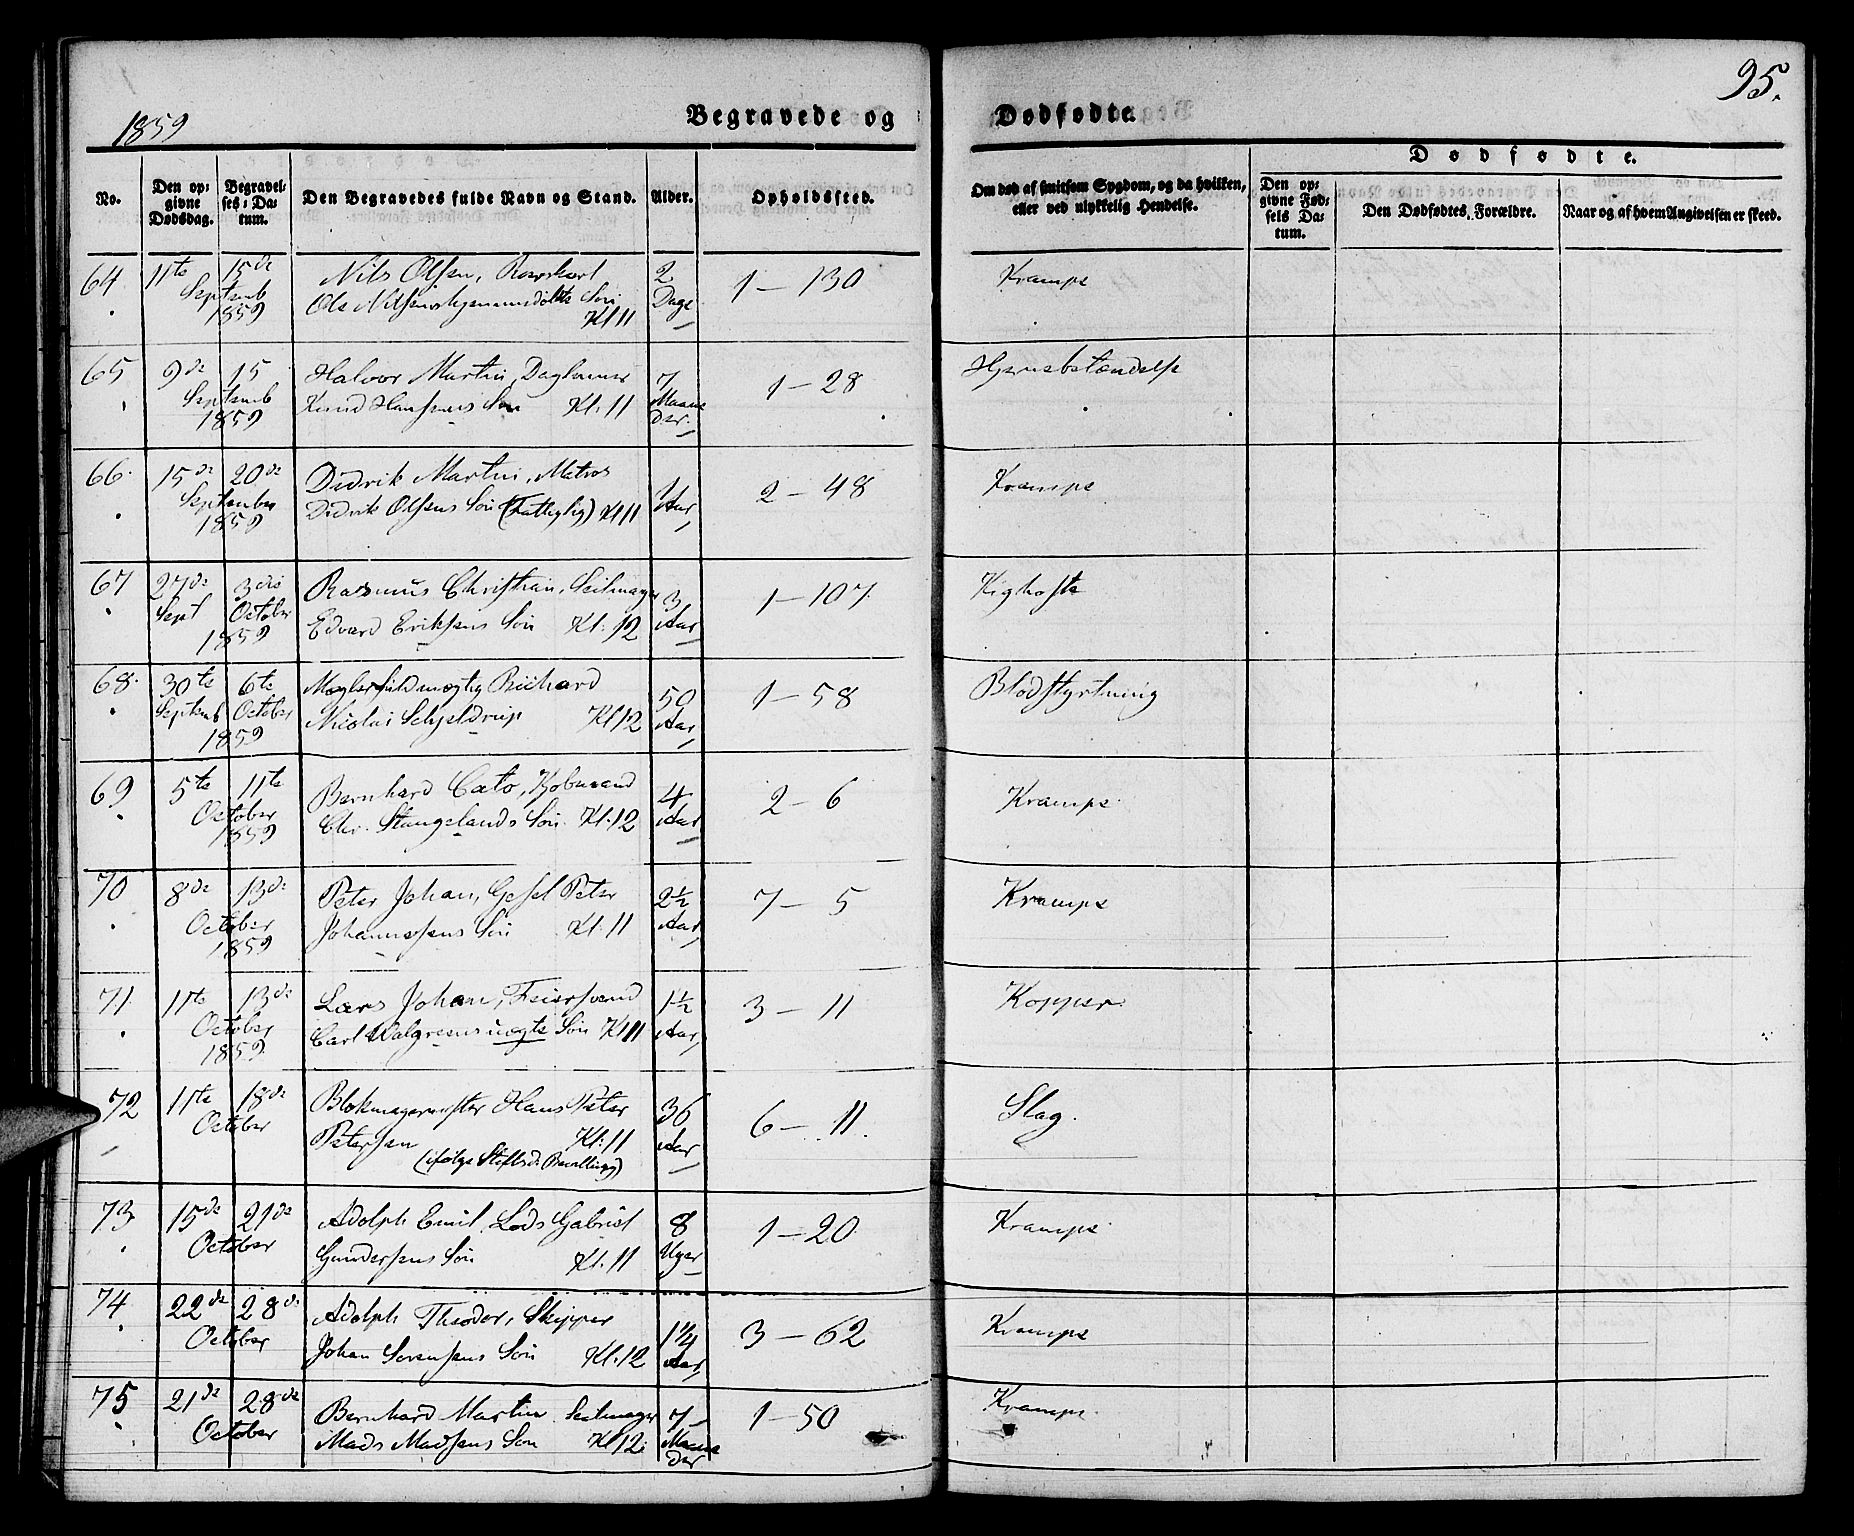 1859
Begravede og Dødfødte.
95.
No.
Den op-
givne
Dødsdag.
Begravel-
ses-Da-
tum.
Den Begravedes fulde Navn og Stand.
Alder.
Opholdssted.
Om død af smitsom Sygdom, og da hvilken,
eller ved ulykkelig Hendelse.
Dødfødte.
Den op-
givne Fød-
sels Da-
tum.
Den Dødfødtes Forældre.
Naar og af hvem Angivelsen er skeed.
64 11te 15de Nils Olsen, 2 1 — 130 Krampe
Septemb Ole Nilsens Søn Dage
1859 Kl 11
65 9de 15 Halvor Martin, Daglønner 7 1 — 28 Hjernebetændelse
Septemb Knud Hansens Søn Kl: 11 Maane
1859 der.
66. 15de 20de Didrik Martin, Matros 1 2 — 48 Krampe
September Didrik Olsens Søn (Fattiglig) Kl 11 Aar
1859
67 27de 3die Rasmus Christian, Seilmager 3 1 — 107. Kighoste
Sept October Edvard Eriksens Søn Kl: 12 Aar
1859
68. 30te 6te Mæglerfuldmægtig Richard 50 1 — 58 Blodstyrtning
Septemb October Nicolai Schjeldrup Kl 12 Aar
1859
69 5te 11te Bernhard Cato, Kjøbmand 4 2 — 6 Krampe
October Chr. Stangelands Søn. Kl. 12 Aar
1859
70 8de 13de Peter Johan, Gesel Peter 2½ 7 — 5 Krampe
October Johannesens Søn Kl: 11 Aar
1859
71. 11te 13de Lars Johan, Feiersvend 1½ 3 — 11 Kopper
October Carl Walgreens uægte Søn Kl 11 Aar
1859
72 11te 18de Blokmagermester Hans Peter 36 6 — 11. Slag.
October Petersen Kl: 11 Aar
(ifølge Stiftsd: Bevilling)
73 15de 21de Adolph Emil, Lods Gabriel 8 1 — 20 Krampe
October Gundersens Søn Kl. 11 Uger
74 22de 28de Adolph Theodor, Skipper 1¼ 3 — 62 Krampe
October Johan Sørensens Søn Kl. 12 Aar
75 21de 28de Bernhard Martin Seilmager 7 1 — 50 Krampe
October Mads Madsens Søn Kl 12 Maane
der